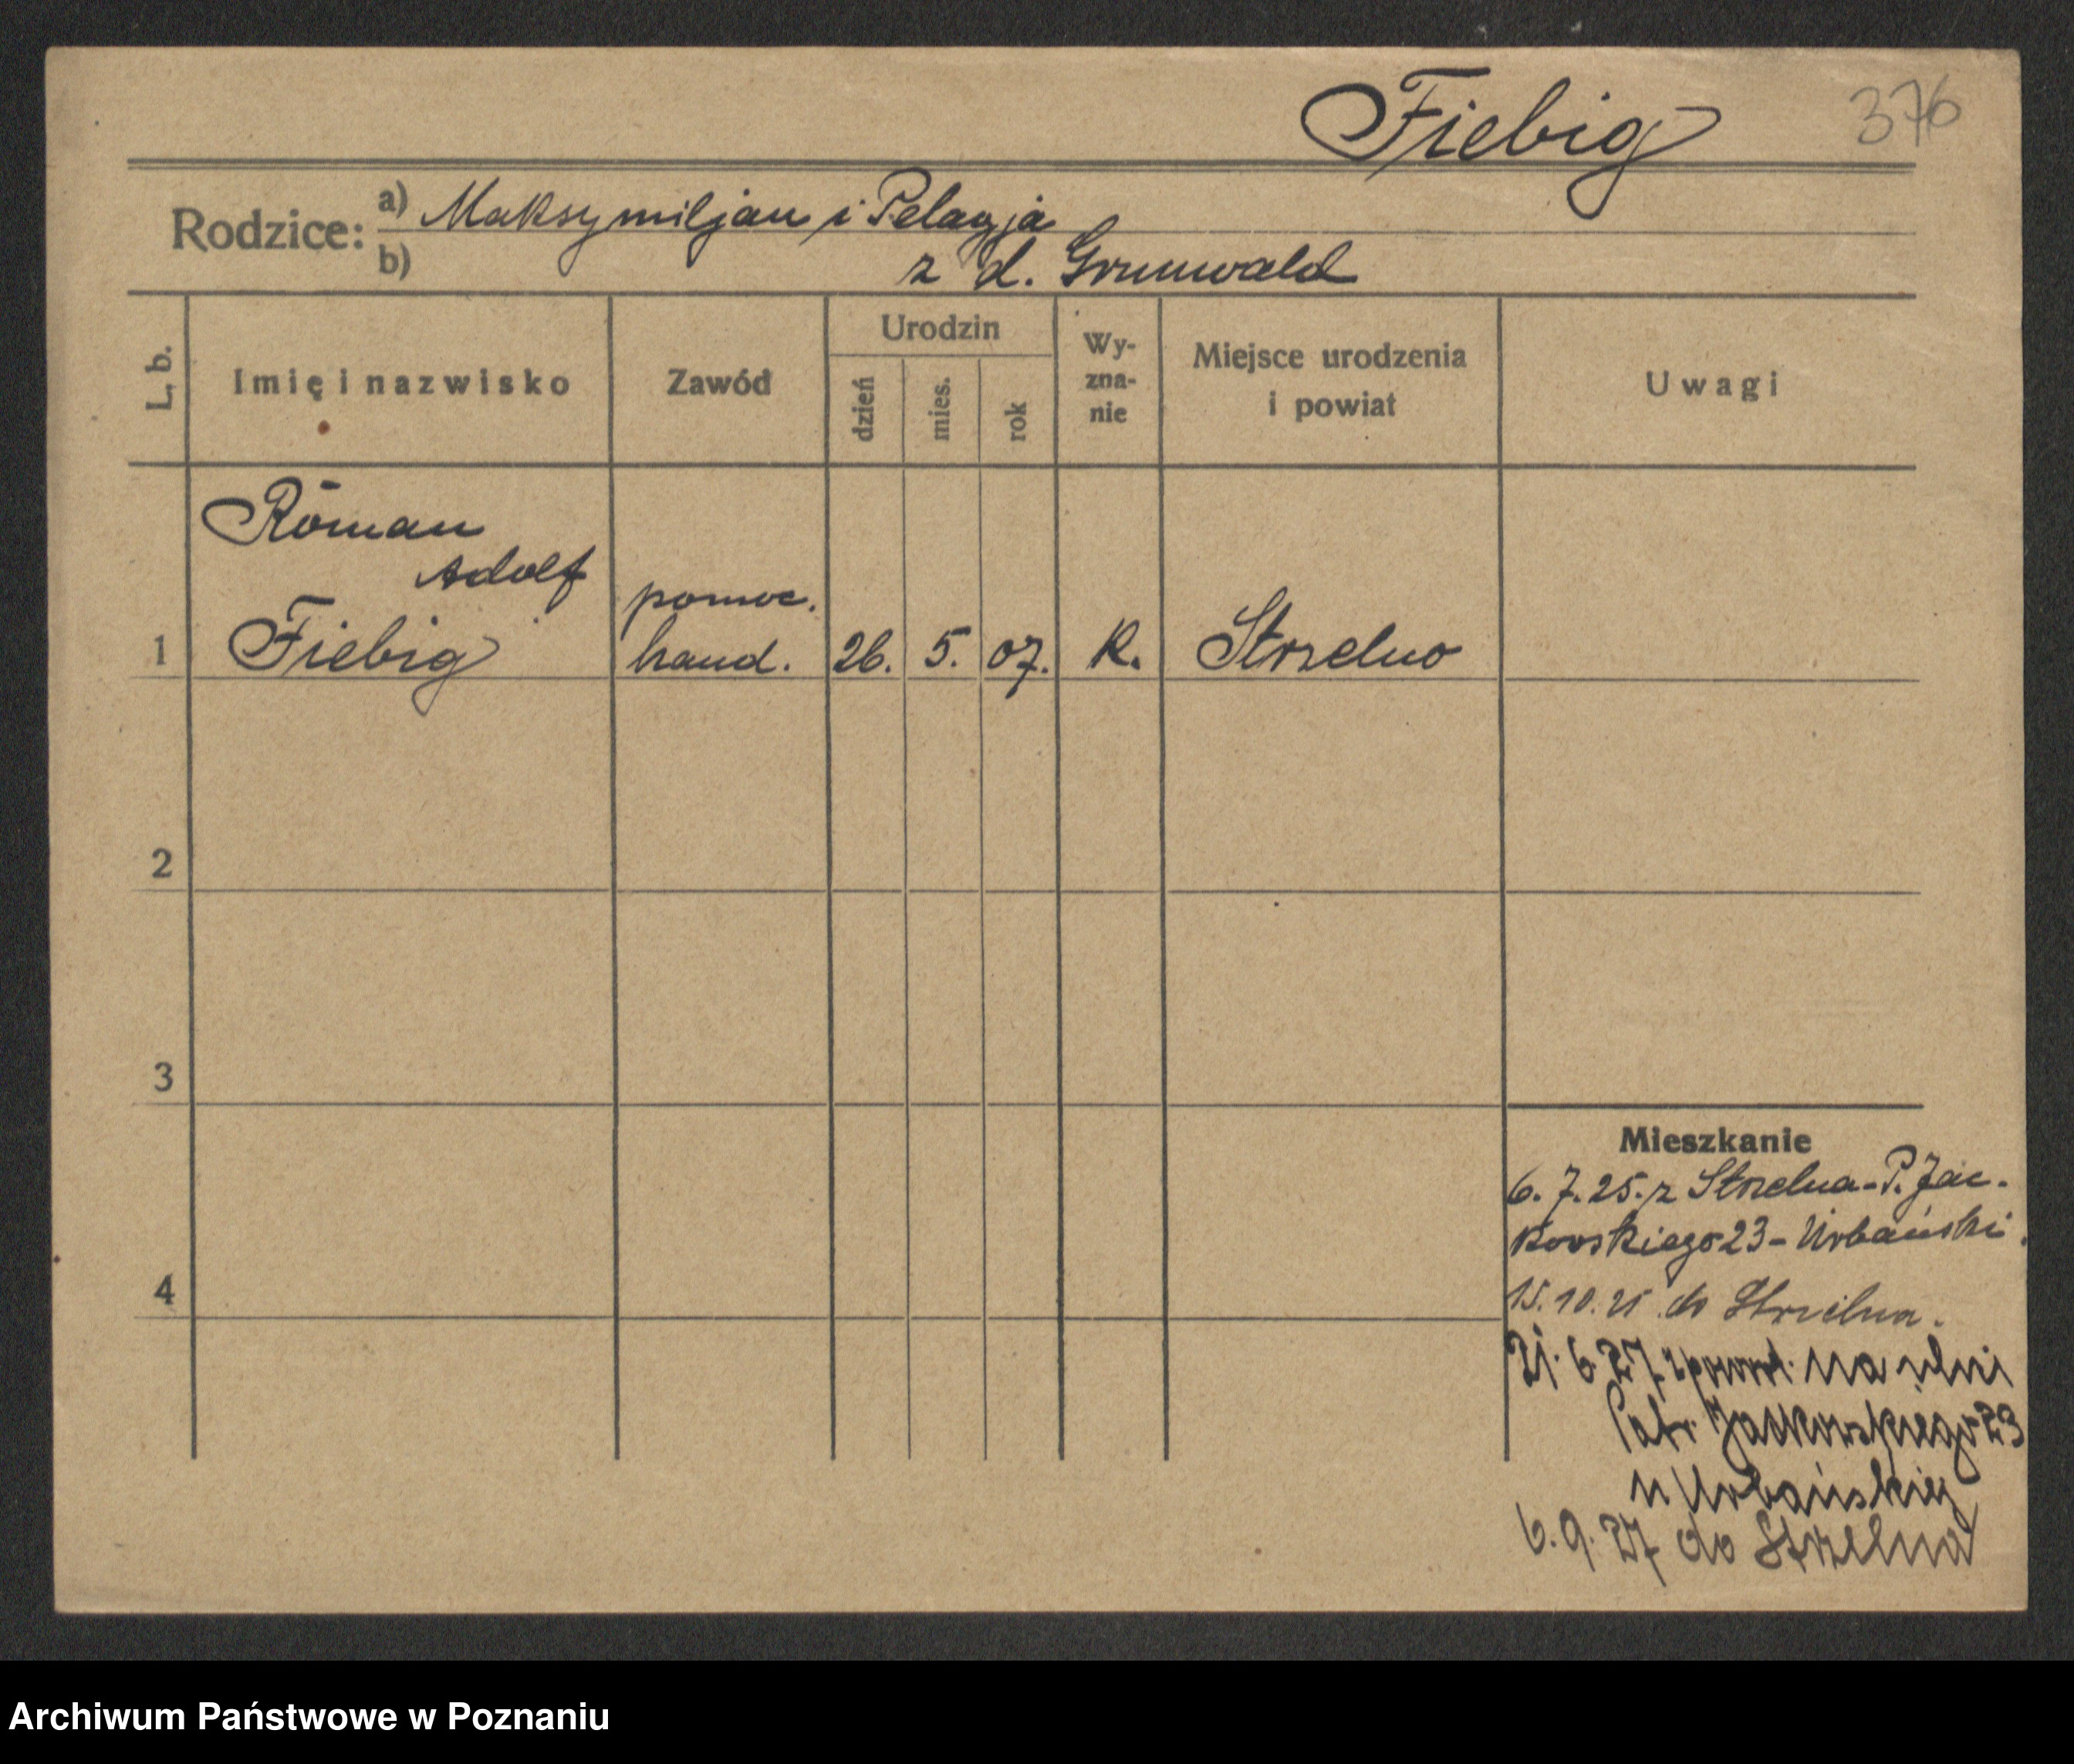 Fiebig 376
Rodzice: a) Maksymiljan i Pelagja
b) z d. Grunwald
L. b. Imię i nazwisko Zawód Urodzin dzień mies. rok Wy-zna-nie Miejsce urodzenia i powiat Uwagi
Roman
Adolf pomoc.
1 Fiebig hand. 26. 5. 07. K. Strzelno
2
3
Mieszkanie
6. 7. 25. z Strzelna - P. Jac-
kowskiego 23 - Urbański.
4 15. 10. 25 do Strzelna.
21. 6. 27 na ului
Patr. Jackowskiego 23
u Urbańskiej
6. 9. 27 do Strzelna
Archiwum Państwowe w Poznaniu